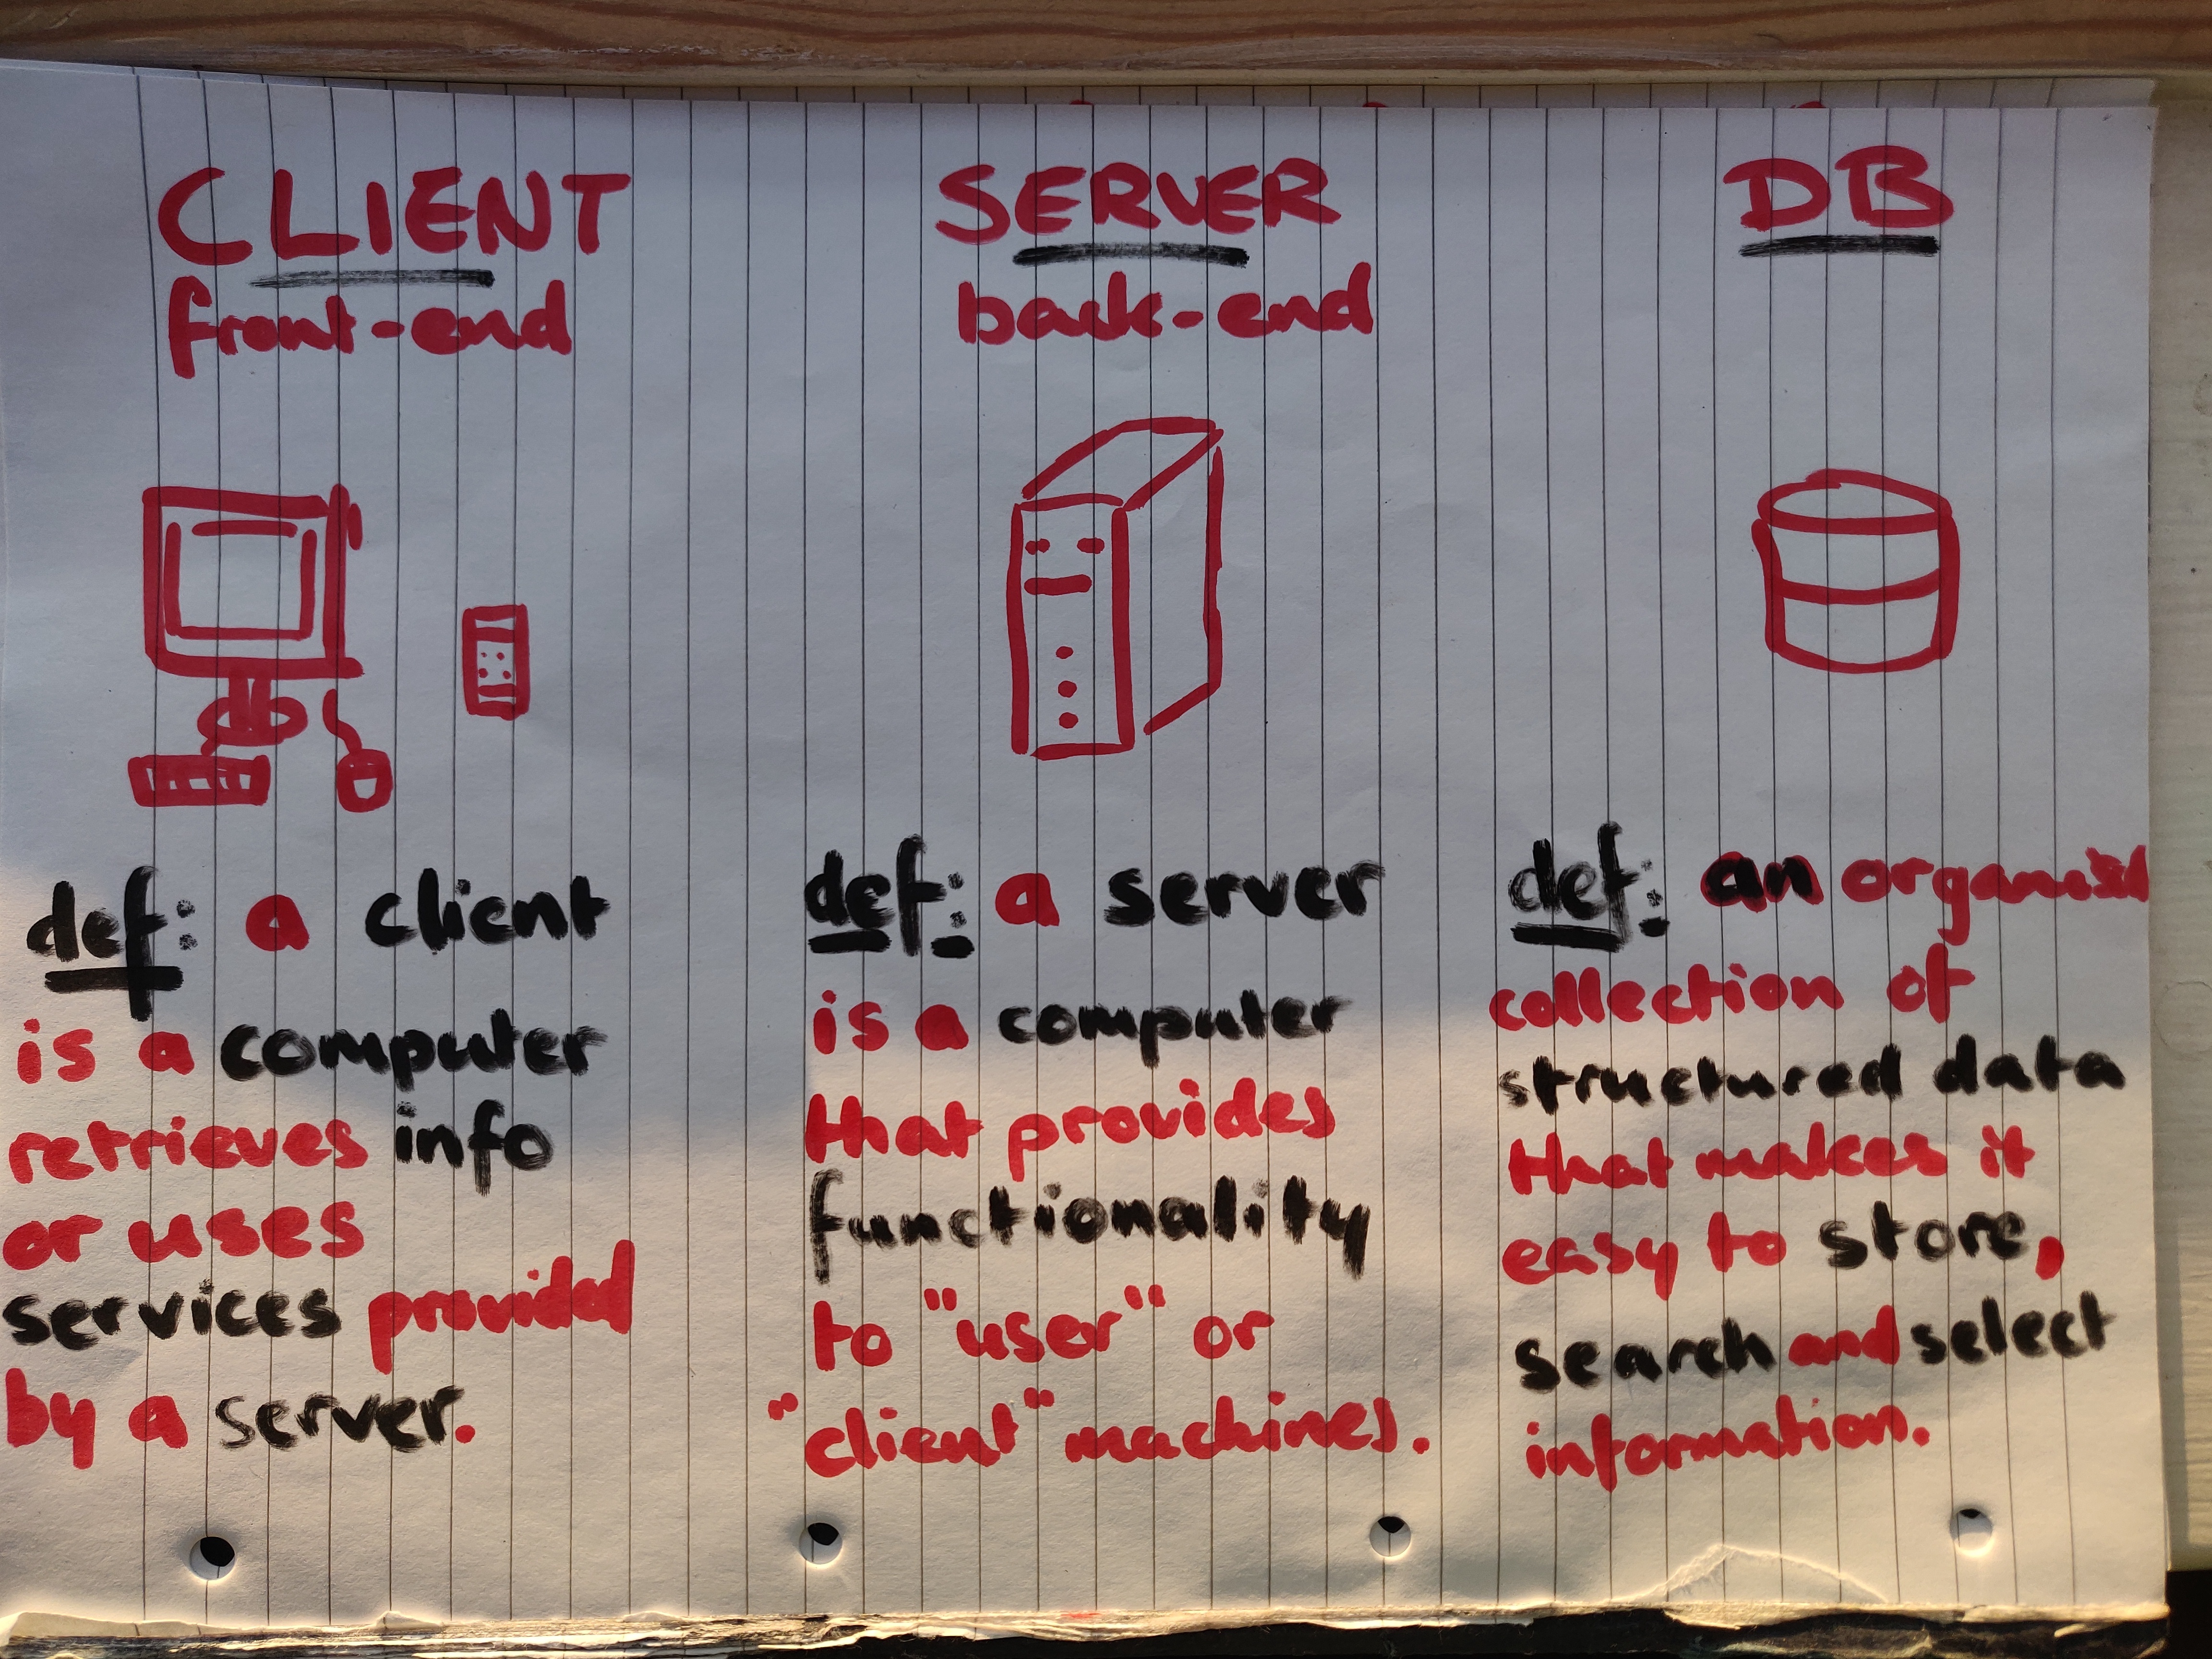 CLIENT
front-end
def: a client
is a computer
retrieves info
or uses
services provided
by a server.
SERVER
back-end
def: a server
is a computer
that provides
functionality
to "user" or
"client" machines.
DB
def: an organised
collection of
structured data
that makes it
easy to store,
search and select
information.